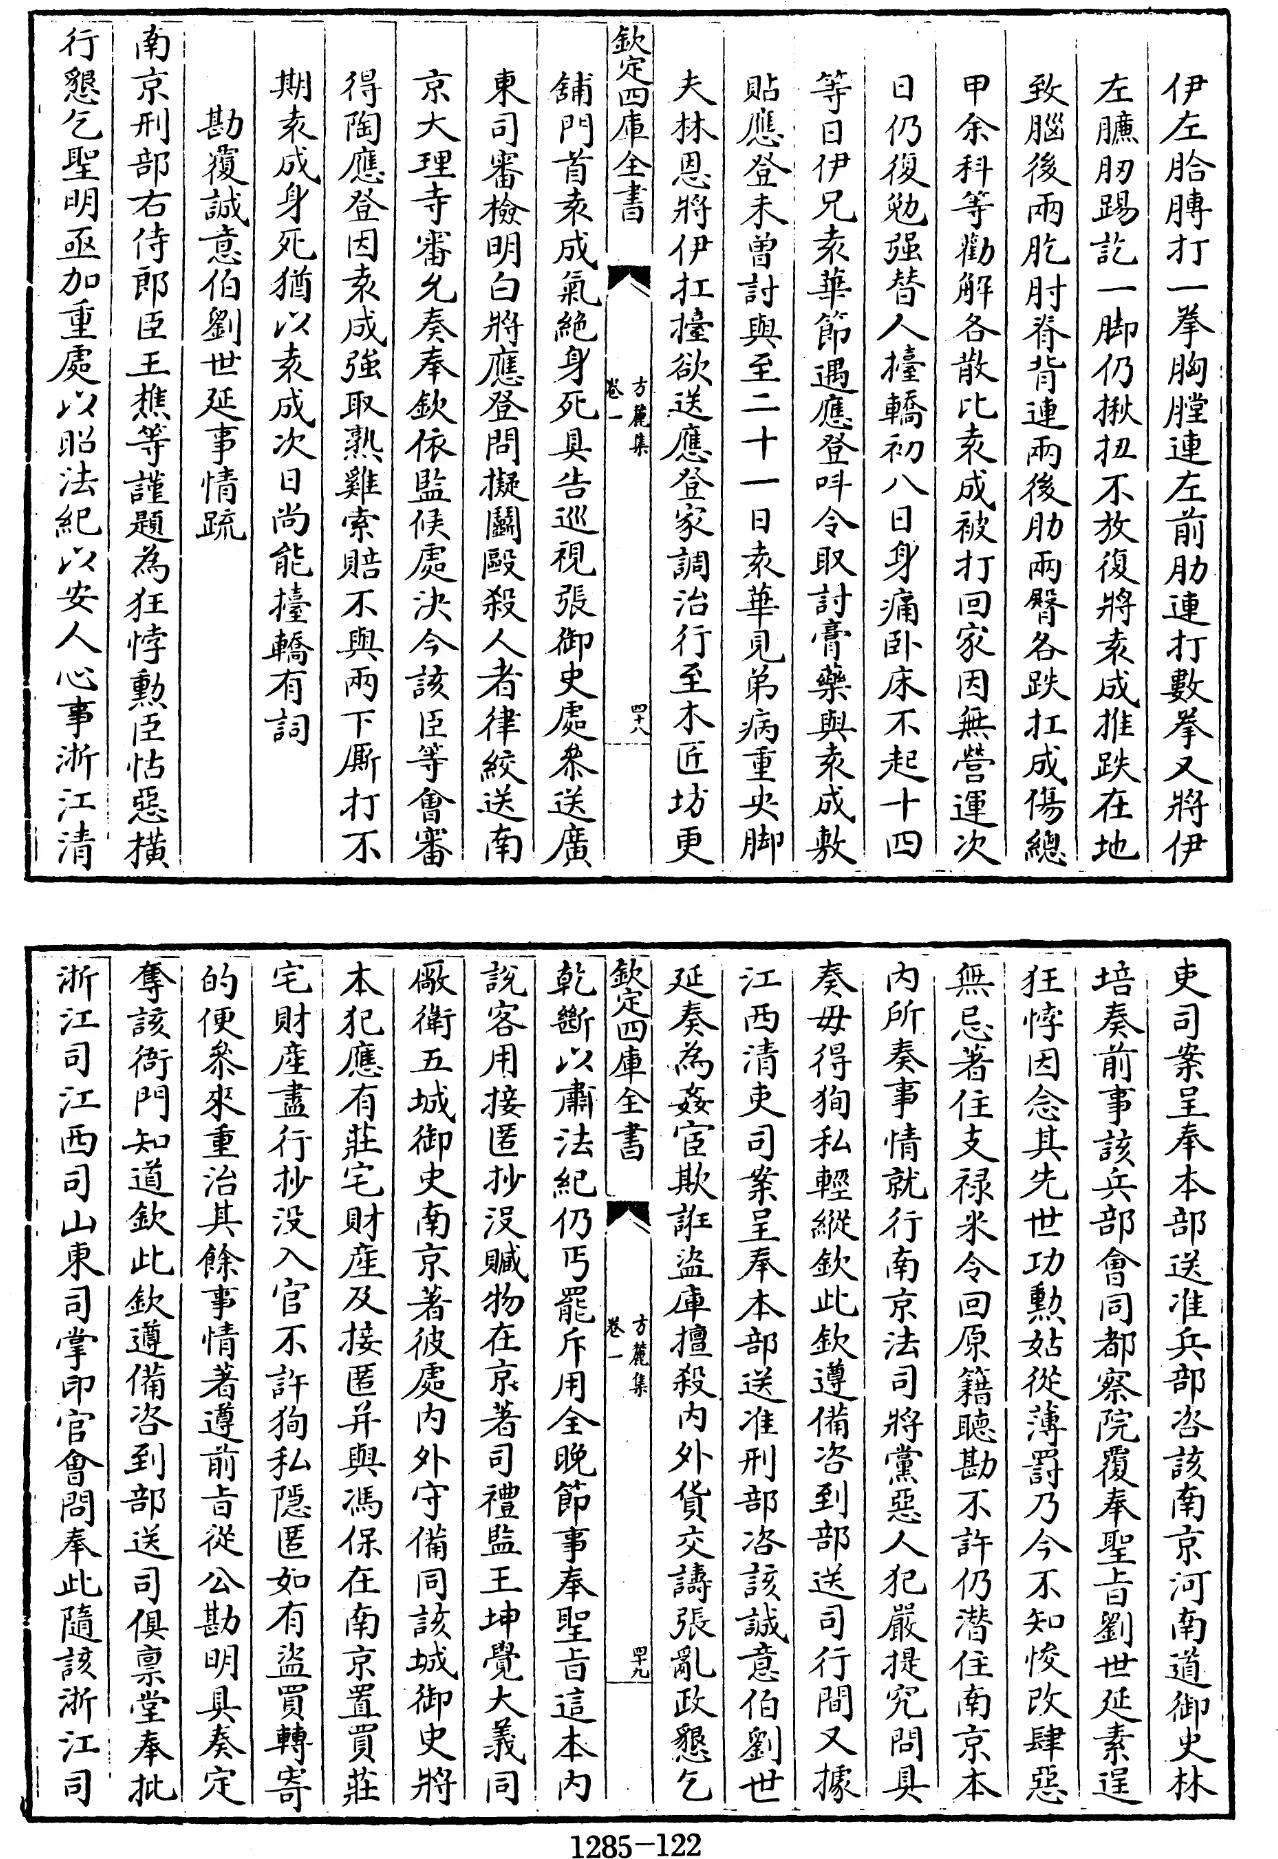 伊左胎膊打一拳胸膛連左前肋連打數拳又將伊
左臁肕踢訖一脚仍揪扭不放復將袁成推跌在地
致腦後兩肐肘脊背連兩後肋兩臀各跌扛成傷總
甲余科等勸解各散比袁成被打回家因無營運次
日仍復勉强替人擡轎初八日身痛卧床不起十四
等日伊兄袁華節遇應登呌令取討膏藥與袁成敷
貼應登未曾討與至二十一日袁華見弟病重央脚
夫林恩將伊扛擡欲送應登家調治行至木匠坊更
欽定四庫全書
方麓集
卷一
四十八
舖門首袁成氣絶身死具告巡視張御史處叅送廣
東司審檢明白將應登問擬鬭毆殺人者律絞送南
京大理寺審允奏奉欽依監候處決今該臣等會審
得陶應登因袁成強取熟雞索賠不與兩下厮打不
期袁成身死猶以袁成次日尚能擡轎有詞
勘覆誠意伯劉世延事情疏
南京刑部右侍郎臣王樵等謹題為狂悖勲臣怙惡横
行懇乞聖明亟加重處以昭法紀以安人心事浙江清
吏司案呈奉本部送准兵部咨該南京河南道御史林
培奏前事該兵部會同都察院覆奉聖㫖劉世延素逞
狂悖因念其先世功勲姑從薄罰乃今不知悛改肆惡
無忌著住支禄米令回原籍聽勘不許仍潛住南京本
内所奏事情就行南京法司將黨惡人犯嚴提究問具
奏毋得狥私輕縱欽此欽遵備咨到部送司行間又據
江西清吏司案呈奉本部送准刑部咨該誠意伯劉世
延奏為姦宦欺誑盜庫擅殺内外貨交譸張亂政懇乞
欽定四庫全書
方麓集
卷一
四十九
乾斷以肅法紀仍丐罷斥用全晚節事奉聖㫖這本内
說客用接匿抄没贓物在京著司禮監王坤覺大義同
厰衛五城御史南京著彼處内外守備同該城御史將
本犯應有莊宅財産及接匿并與馮保在南京置買莊
宅財産盡行抄没入官不許狥私隱匿如有盜買轉寄
的便叅來重治其餘事情著遵前㫖從公勘明具奏定
奪該衙門知道欽此欽遵備咨到部送司俱禀堂奉批
浙江司江西司山東司掌印官會問奉此隨該浙江司
1285-122